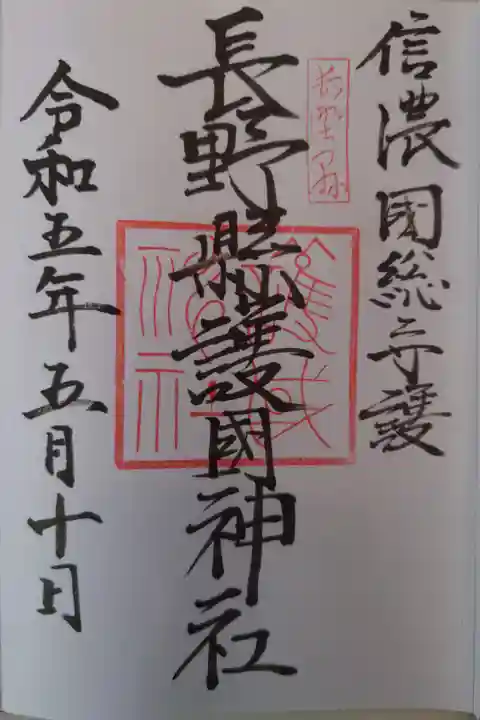 信濃國総守護
長野縣
長野縣護國神社
令和五年五月十日